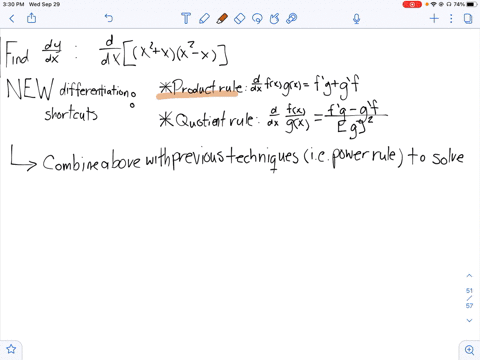 3:30 PM Wed Sep 29
74%
Find dy/dx : d/dx [(x²+x)(x²-x)]
NEW differentiation: * Product rule: d/dx f(x)g(x) = f'g+g'f
shortcuts * Quotient rule: d/dx f(x)/g(x) = f'g-g'f/[g]²
↳ Combine above with previous techniques (i.e. power rule) to solve
51
/
57